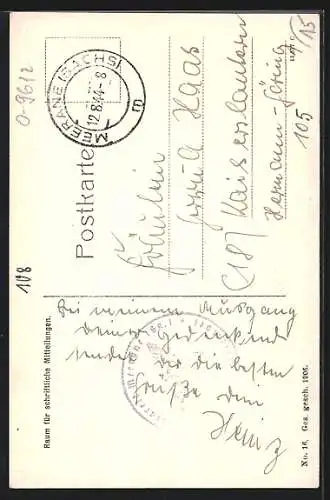 0-9612
MEERANE (SACHS)
12.8.44-8
Postkarte
Fräulein
Haas
Kaiserslautern
(18)
Hermann-Göring
105
1/15
108
Raum für schriftliche Mitteilungen.
Bei meinem Ausgang
Deiner gedenkend
sendet Dir die besten
Grüße Dein
Heinz
No. 16, Ges. gesch. 1906.